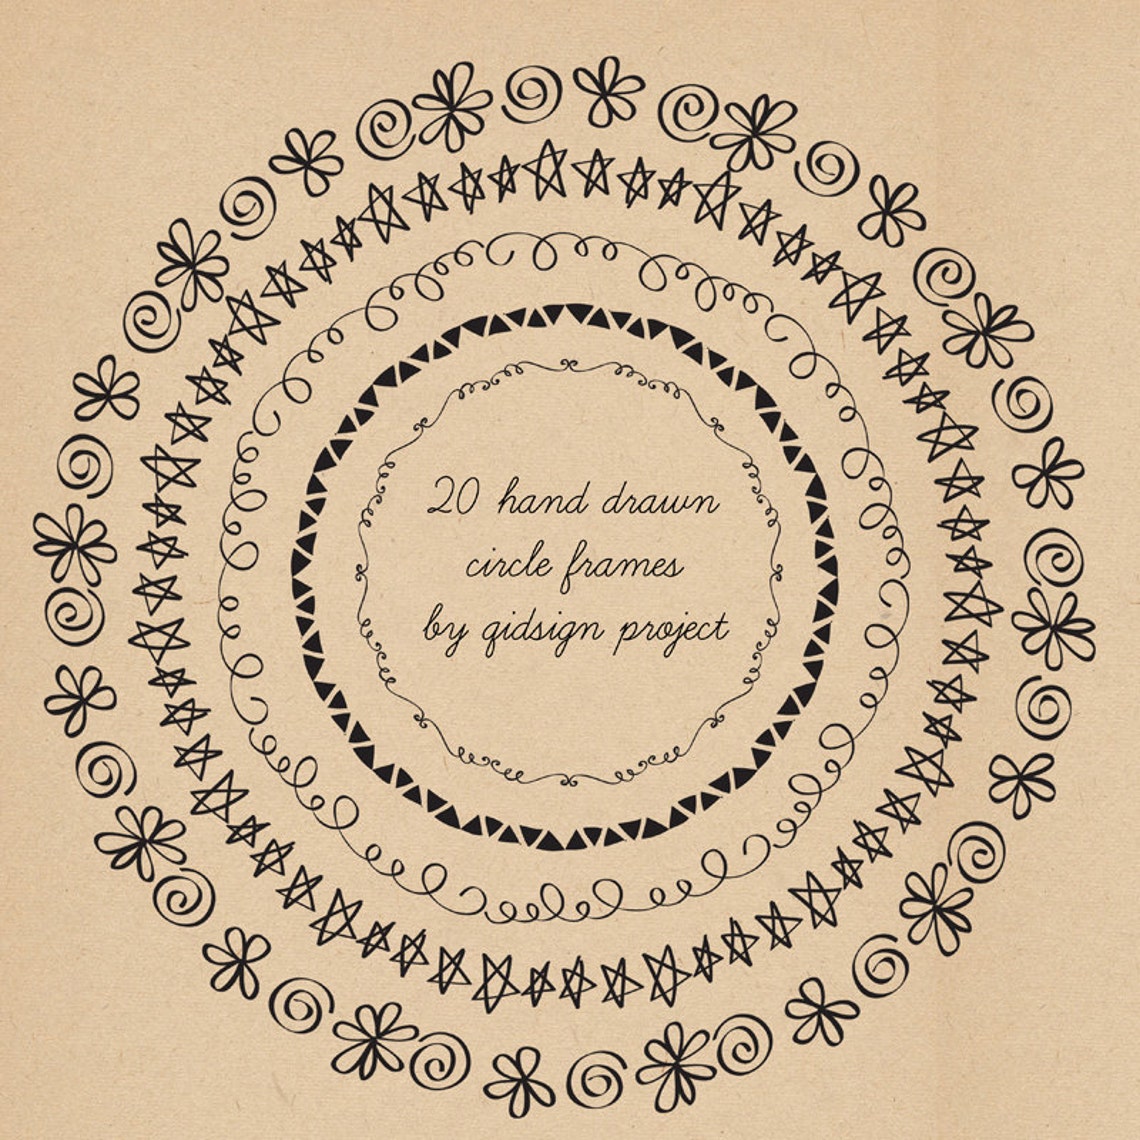 20 hand drawn
circle frames
by qidsign project